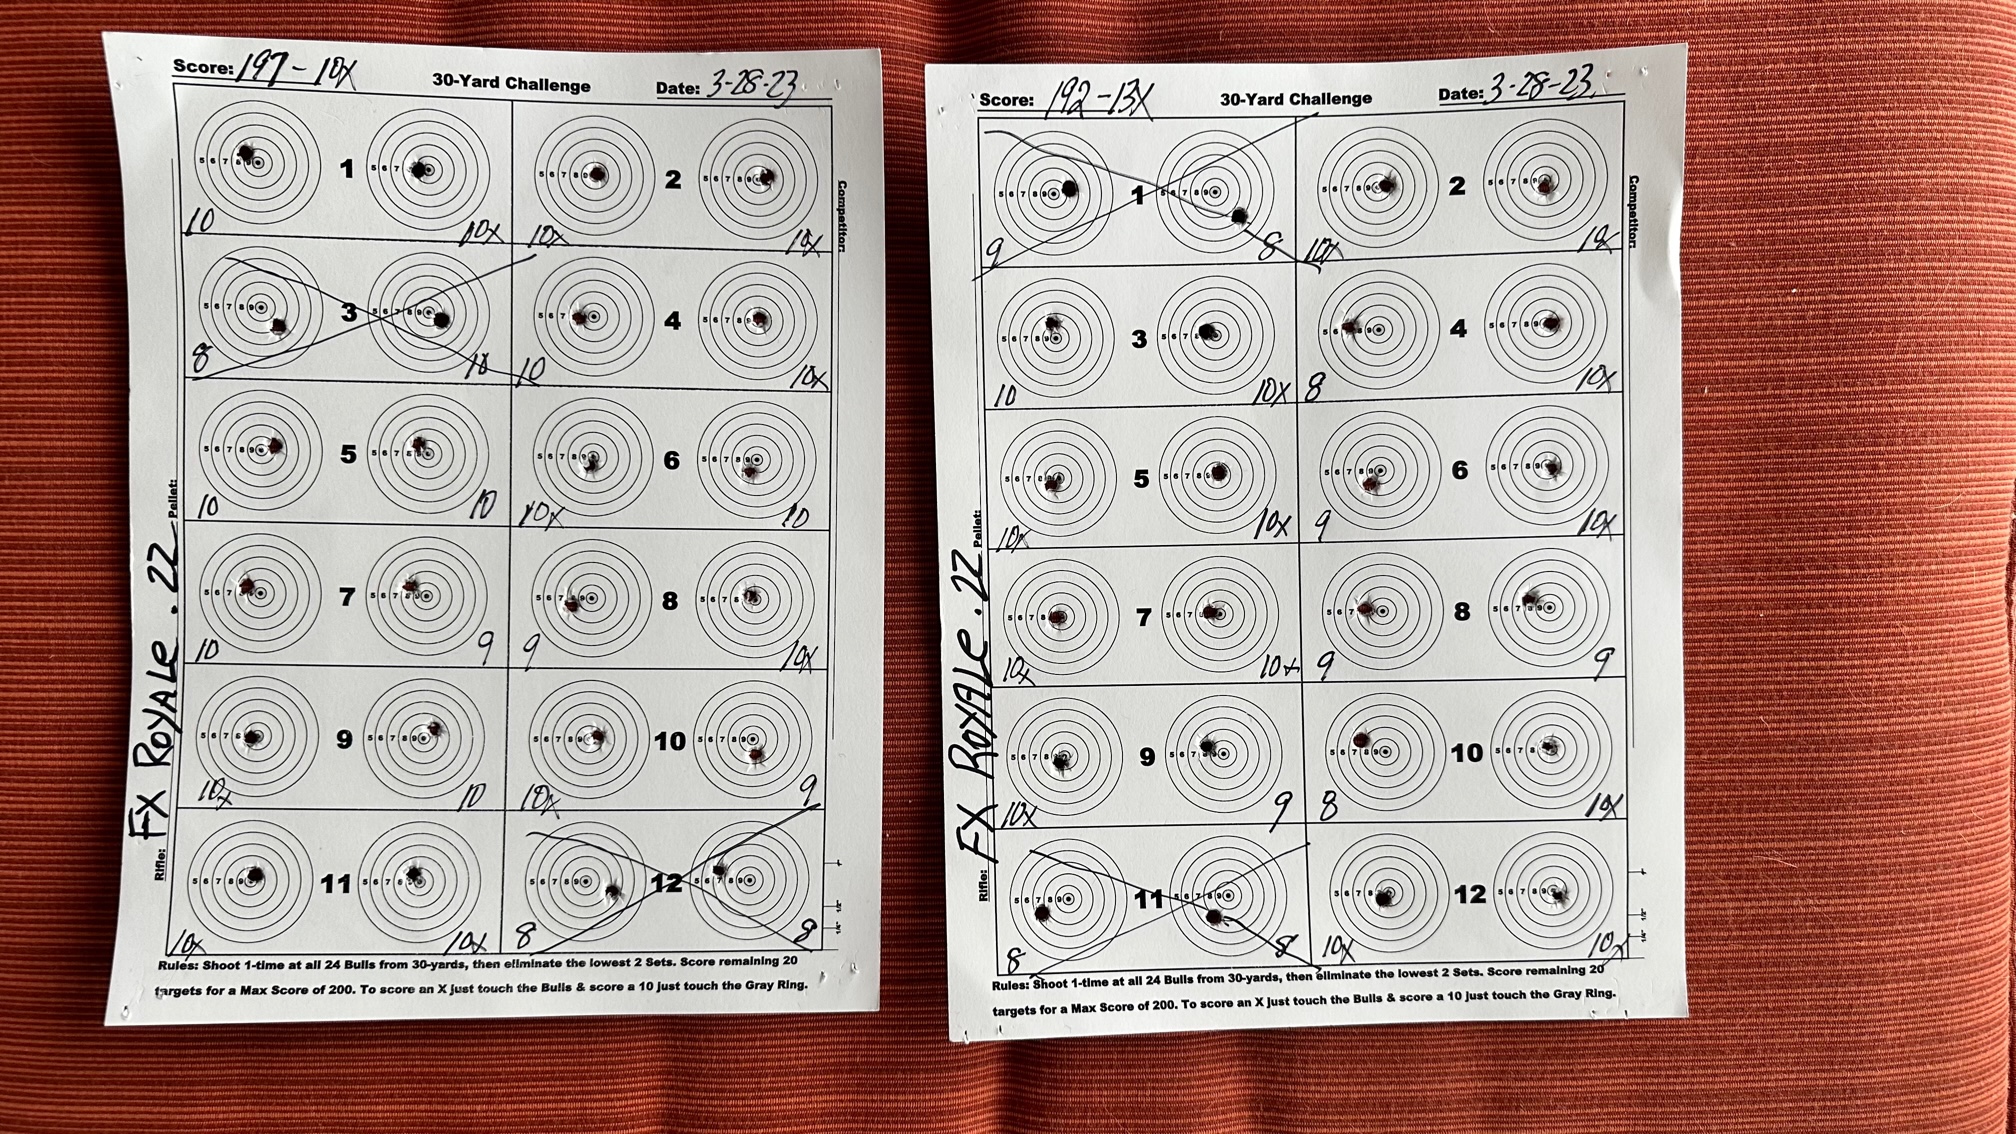 Score: 197-10X 30-Yard Challenge Date: 3-28-23
1 2
10 10X 10X 10X
3 4
8 10 10 10X
5 6
10 10 10X 10
7 8
10 9 9 10X
9 10
10X 10 10X 9
11 12
10X 10X 8 8
Rules: Shoot 1-time at all 24 Bulls from 30-yards, then eliminate the lowest 2 Sets. Score remaining 20
targets for a Max Score of 200. To score an X just touch the Bulls & score a 10 just touch the Gray Ring.
Rifle: FX ROYALE .22 Pellet:
Competitor:
Score: 192-13X 30-Yard Challenge Date: 3-28-23
1 2
9 8 10X 10X
3 4
10 10X 8 10X
5 6
10X 10X 9 10X
7 8
10X 10X 9 9
9 10
10X 9 8 10X
11 12
8 8 10X 10X
Rules: Shoot 1-time at all 24 Bulls from 30-yards, then eliminate the lowest 2 Sets. Score remaining 20
targets for a Max Score of 200. To score an X just touch the Bulls & score a 10 just touch the Gray Ring.
Rifle: FX ROYALE .22 Pellet:
Competitor: